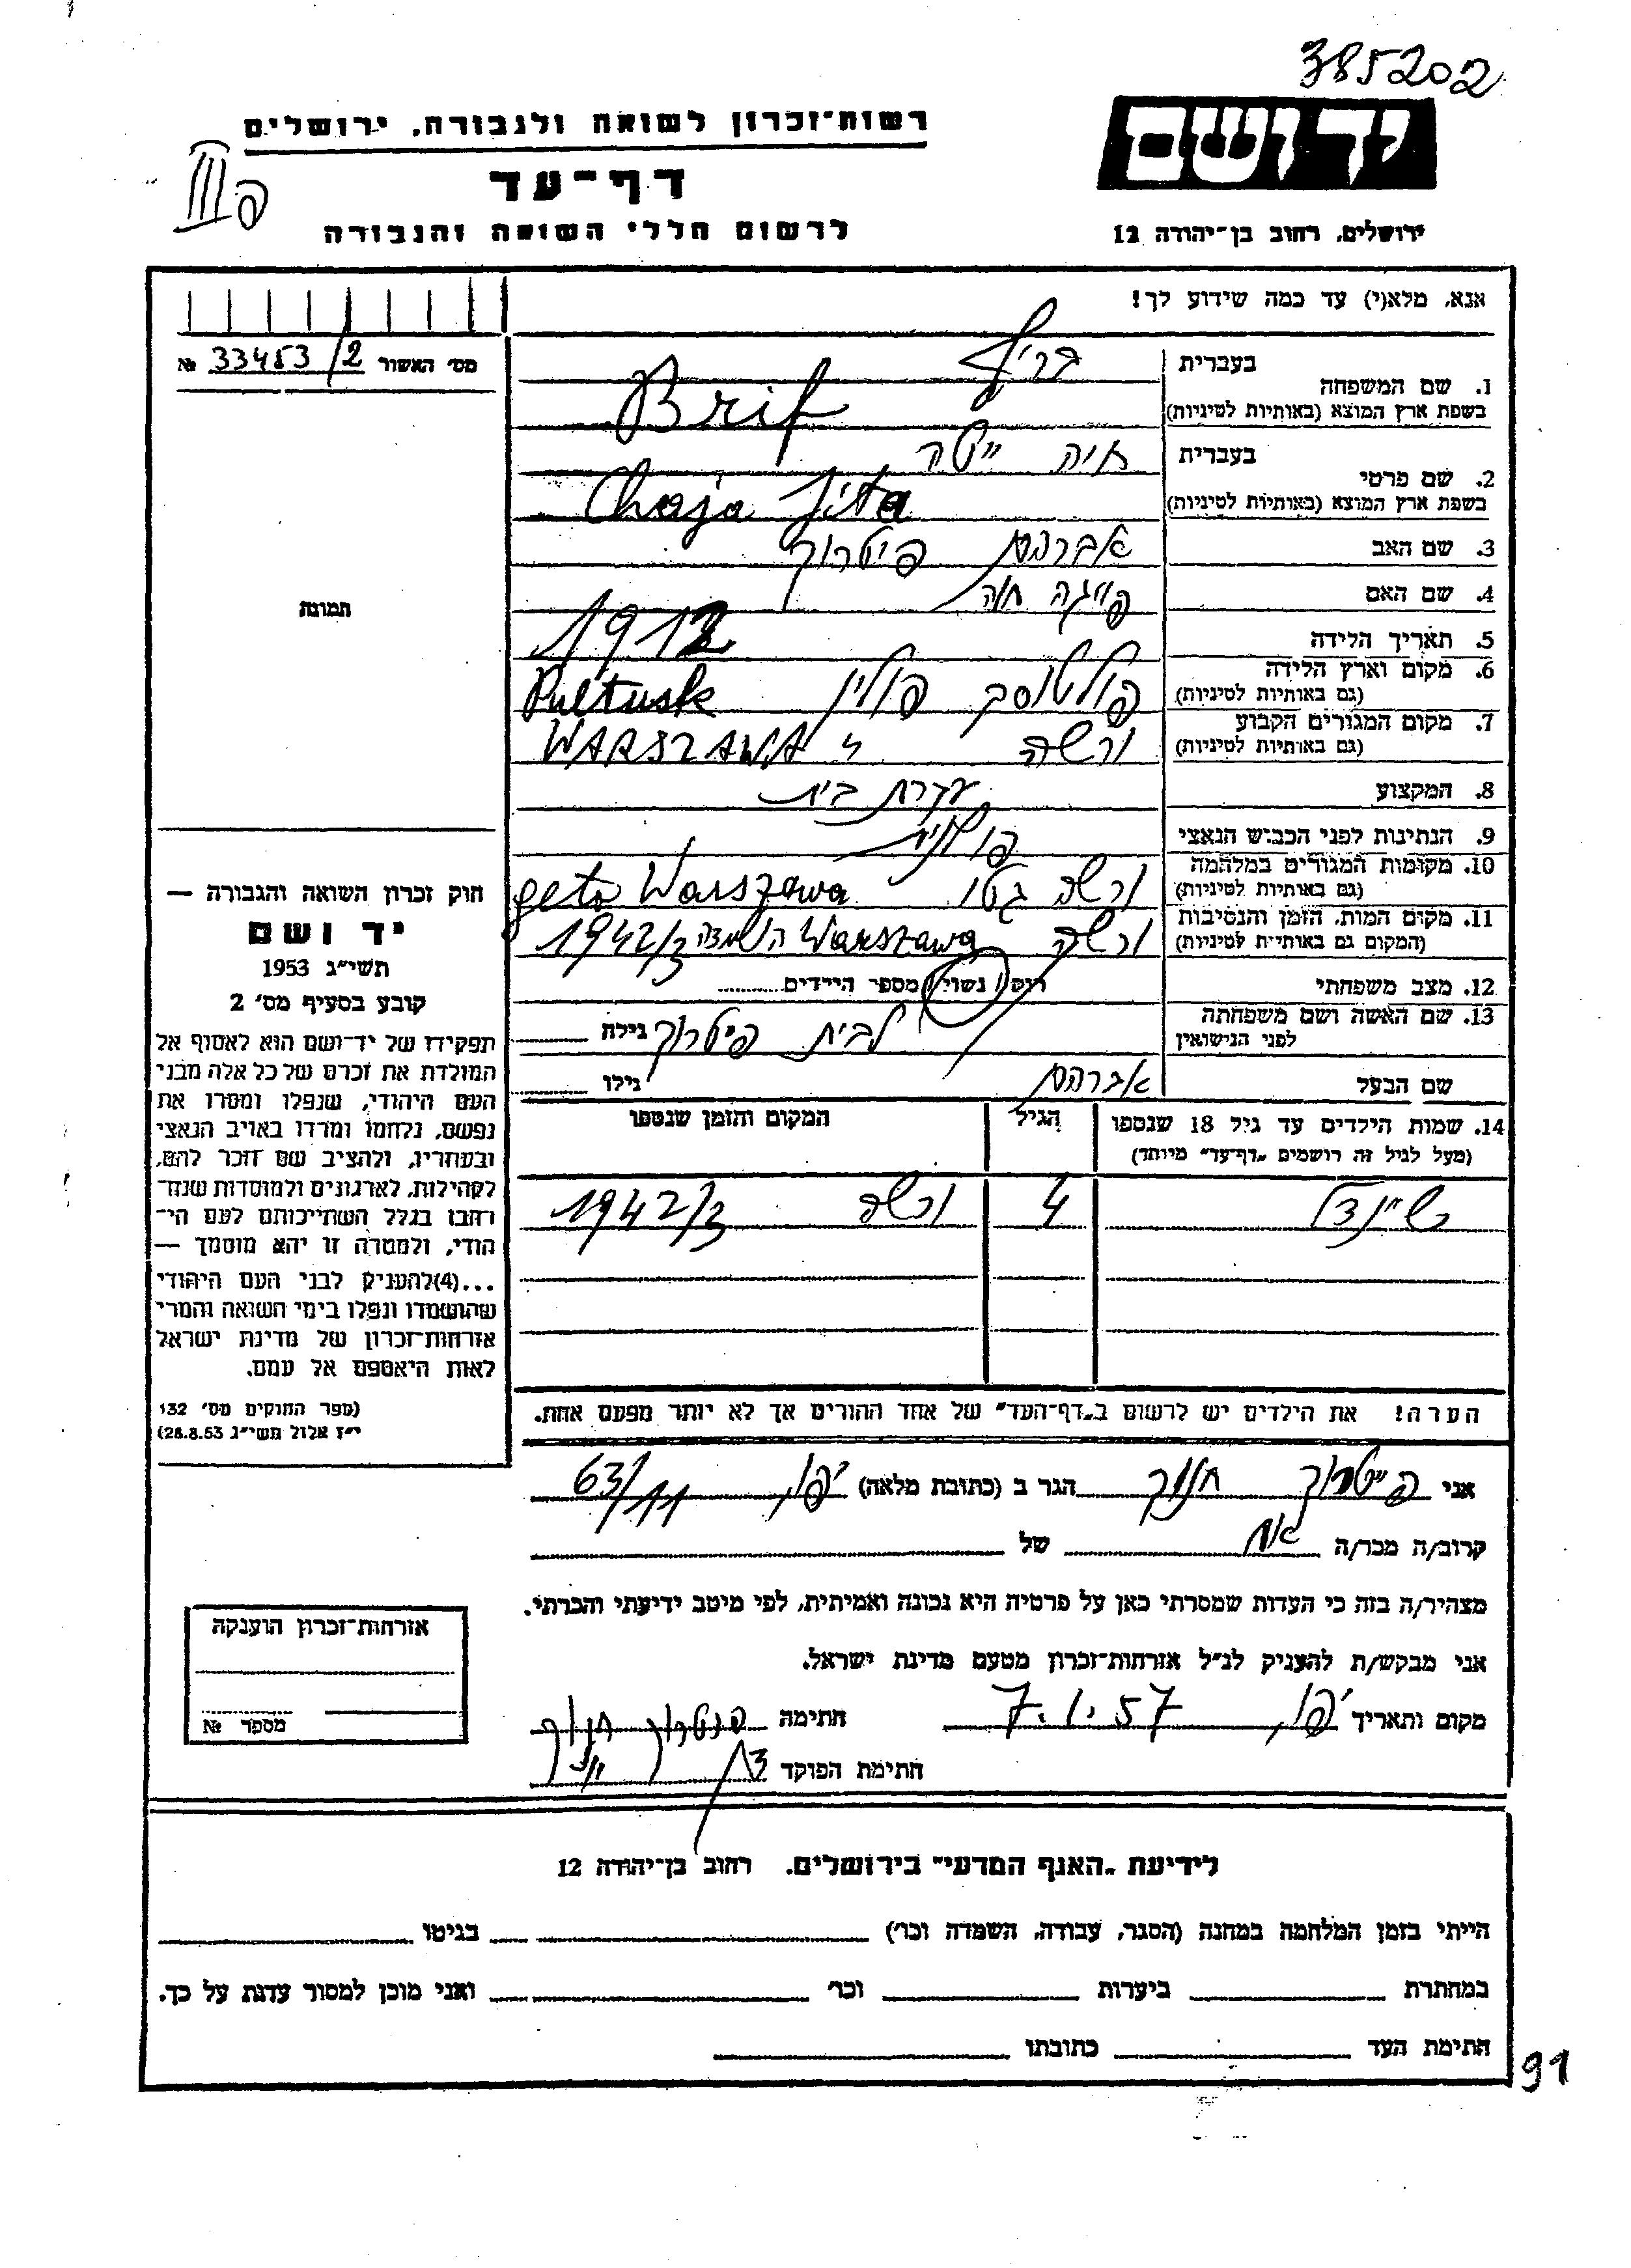 385202
יד ושם
רשות־זכרון לשואה ולגבורה, ירושלים
דף־עד
לרשום חללי השואה והגבורה
ירושלים, רחוב בן־יהודה 12
אנא, מלא(י) עד כמה שידוע לך!
מס׳ האשור 33453/2 №
תמונה
1. שם המשפחה
בעברית בריף
בשפת ארץ המוצא (באותיות לטיניות) Brif
2. שם פרטי
בעברית חיה ייטה
בשפת ארץ המוצא (באותיות לטיניות) Chaja Jita
3. שם האב אברהם פיטרוך
4. שם האם פייגה חוה
5. תאריך הלידה
6. מקום וארץ הלידה פולטוסק פולין Pułtusk
(גם באותיות לטיניות)
7. מקום המגורים הקבוע ורשה WARSZAWA
(גם באותיות לטיניות)
8. המקצוע עקרת בית
9. הנתינות לפני הכבוש הנאצי פולנית
10. מקומות המגורים במלחמה ורשה גטו geto Warszawa
(גם באותיות לטיניות)
11. מקום המות, הזמן והנסיבות ורשה Warszawa השמדה 1942/3
(המקום גם באותיות לטיניות)
12. מצב משפחתי רוק/ נשוי/ מספר הילדים
13. שם האשה ושם משפחתה לבית פיטרוך גילה
לפני הנישואין
שם הבעל אברהם גילו
14. שמות הילדים עד גיל 18 שנספו הגיל המקום והזמן שנספו
(מעל לגיל זה רושמים „דף־עד״ מיוחד)
שיינדל 4 ורשה 1942/3
הערה! את הילדים יש לרשום ב„דף־העד״ של אחד ההורים אך לא יותר מפעם אחת.
חוק זכרון השואה והגבורה —
יד ושם
תשי״ג 1953
קובע בסעיף מס׳ 2
תפקידו של יד־ושם הוא לאסוף אל
המולדת את זכרם של כל אלה מבני
העם היהודי, שנפלו ומסרו את
נפשם, נלחמו ומרדו באויב הנאצי
ובעוזריו, ולהציב שם וזכר להם,
לקהילות, לארגונים ולמוסדות שנח־
רבו בגלל השתייכותם לעם הי־
הודי, ולמטרה זו יהא מוסמך —
...(4)להעניק לבני העם היהודי
שהושמדו ונפלו בימי השואה והמרי
אזרחות־זכרון של מדינת ישראל
לאות היאספם אל עמם.
(ספר החוקים מס׳ 132
י״ז אלול תשי״ג 28.8.53)
אני פיטרוך חנוך הגר ב (כתובת מלאה) יפו, 63/11
קרוב/ה מכר/ה אח של
מצהיר/ה בזה כי העדות שמסרתי כאן על פרטיה היא נכונה ואמיתית, לפי מיטב ידיעתי והכרתי.
אני מבקש/ת להעניק לנ״ל אזרחות־זכרון מטעם מדינת ישראל.
מקום ותאריך יפו, 7.1.57 חתימה פיטרוך חנוך
חתימת הפוקד
אזרחות־זכרון הוענקה
מספר №
לידיעת „האגף המדעי״ בירושלים, רחוב בן־יהודה 12
הייתי בזמן המלחמה במחנה (הסגר, עבודה, השמדה וכו׳) בגיטו
במחתרת ביערות וכו׳ ואני מוכן למסור עדות על כך.
חתימת העד כתובתו
91